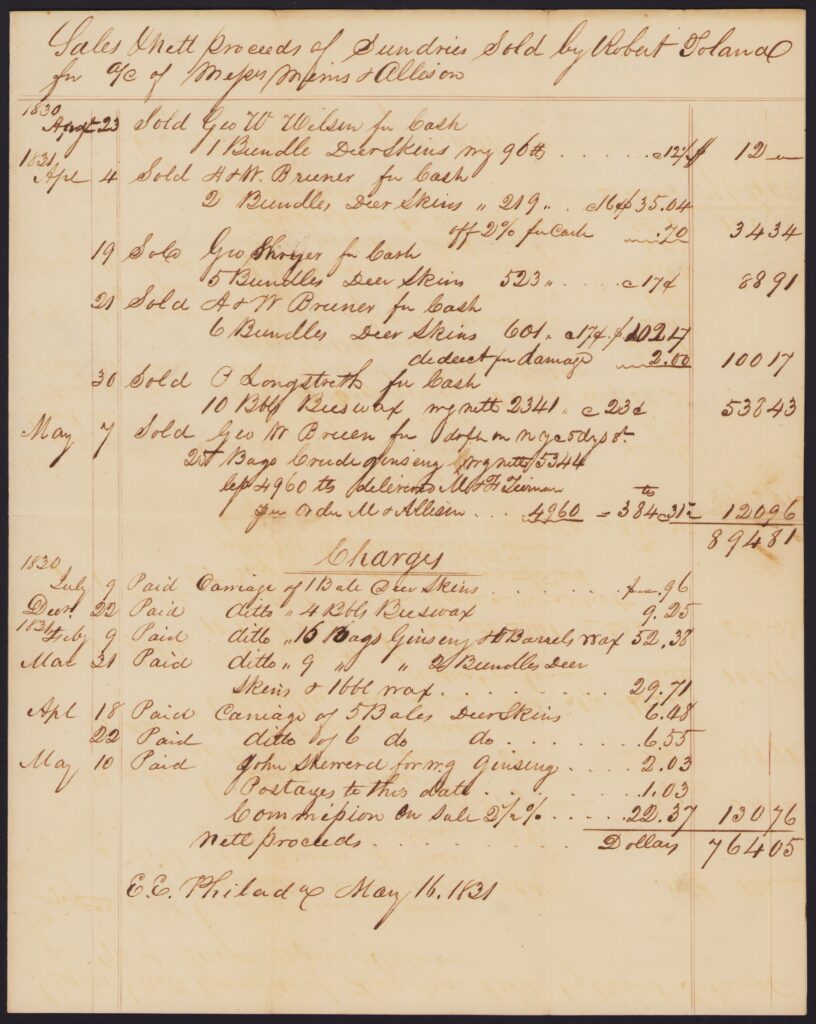 Sales & Nett proceeds of Sundries Sold by Robert Toland
for a/c of Messrs Mims & Allison
1830
Augt 23 Sold Geo W Wilson for Cash
1 Bundle Deer Skins wg 96 lb . . . . c 12½ $ 12 "
1831
Apl 4 Sold A & W Bruner for Cash
2 Bundles Deer Skins " 219 " . c 16 $ 35.04
off 2% for Cash .70 34 34
19 Sold Geo Shryer for Cash
5 Bundles Deer Skins 523 " . . . c 17 ¢ 88 91
21 Sold A & W Bruner for Cash
6 Bundles Deer Skins 601 " c 17¢ . $ 102 17
deduct for damage 2.00 100 17
30 Sold C Longstreth for Cash
10 Bbls Beeswax wg nett 2341 " c 23¢ 538 43
May 7 Sold Geo W Breen for dft on N y c 5 dys st.
25 Bags Crude ginseng wg nett 5344
less 4960 lb delivered M & H Tiernan
per Order M & Allison . . . 4960 = 384 lb c 31½ 120 96
894 81
Charges
1830
July 9 Paid Carriage of 1 Bale Deer Skins . . . . . . $ " .96
Decr. 22 Paid ditto " 4 Bbls Beeswax 9.25
1831 Feby 9 Paid ditto " 16 Bags Ginseng & 5 Barrels wax 52.38
Mar 31 Paid ditto " 9 " " 2 Bundles Deer
Skins & 1 bbl wax . . . . . . . . . 29.71
Apl 18 Paid Carriage of 5 Bales Deer Skins 6.48
22 Paid ditto of 6 do do . . . . . . 6.55
May 10 Paid John Skerrerd for wg Ginseng . . . . 2.03
Postages to this date . . . . . . . 1.03
Commission on Sale 2½% . . . . . 22.37 130 76
Nett proceeds . . . . . . . . Dollars 764 05
E.E. Philada May 16. 1831